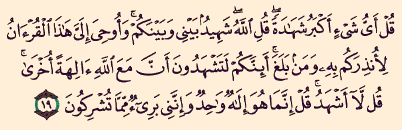 قُلْ أَىُّ شَىْءٍ أَكْبَرُ شَهَٰدَةً ۖ قُلِ ٱللَّهُ ۖ شَهِيدٌۢ بَيْنِى وَبَيْنَكُمْ ۚ وَأُوحِىَ إِلَىَّ هَٰذَا ٱلْقُرْءَانُ
لِأُنذِرَكُم بِهِۦ وَمَنۢ بَلَغَ ۚ أَئِنَّكُمْ لَتَشْهَدُونَ أَنَّ مَعَ ٱللَّهِ ءَالِهَةً أُخْرَىٰ ۚ
قُل لَّآ أَشْهَدُ ۚ قُلْ إِنَّمَا هُوَ إِلَٰهٌ وَٰحِدٌ وَإِنَّنِى بَرِىٓءٌ مِّمَّا تُشْرِكُونَ ١٩